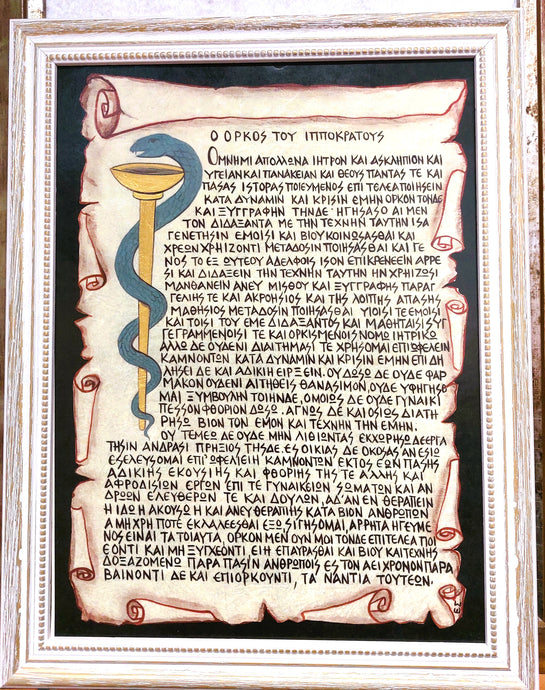 Ο ΟΡΚΟΣ ΤΟΥ ΙΠΠΟΚΡΑΤΟΥΣ
ΟΜΝΗΜΙ ΑΠΟΛΩΝΑ ΙΗΤΡΟΝ ΚΑΙ ΑΣΚΛΗΠΙΟΝ ΚΑΙ
ΥΓΕΙΑΝ ΚΑΙ ΠΑΝΑΚΕΙΑΝ ΚΑΙ ΘΕΟΥΣ ΠΑΝΤΑΣ ΤΕ ΚΑΙ
ΠΑΣΑΣ ΙΣΤΟΡΑΣ ΠΟΙΕΥΜΕΝΟΣ ΕΠΙ ΤΕΛΕΑ ΠΟΙΗΣΕΙΝ
ΚΑΤΑ ΔΥΝΑΜΙΝ ΚΑΙ ΚΡΙΣΙΝ ΕΜΗΝ ΟΡΚΟΝ ΤΟΝΔΕ
ΚΑΙ ΞΥΓΓΡΑΦΗΝ ΤΗΝΔΕ· ΗΓΗΣΑΣΟ ΑΙ ΜΕΝ
ΤΟΝ ΔΙΔΑΞΑΝΤΑ ΜΕ ΤΗΝ ΤΕΧΝΗΝ ΤΑΥΤΗΝ ΙΣΑ
ΓΕΝΕΤΗΣΙΝ ΕΜΟΙΣΙ ΚΑΙ ΒΙΟΥ ΚΟΙΝΩΣΑΣΘΑΙ ΚΑΙ
ΧΡΕΩΝ ΧΡΗΙΖΟΝΤΙ ΜΕΤΑΔΟΣΙΝ ΠΟΙΗΣΑΣΘΑΙ ΚΑΙ ΓΕ
ΝΟΣ ΤΟ ΕΞ ΩΥΤΕΟΥ ΑΔΕΛΦΟΙΣ ΙΣΟΝ ΕΠΙΚΡΕΝΕΕΙΝ ΑΡΡΕ
ΣΙ ΚΑΙ ΔΙΔΑΞΕΙΝ ΤΗΝ ΤΕΧΝΗΝ ΤΑΥΤΗΝ ΗΝ ΧΡΗΙΖΩΣΙ
ΜΑΝΘΑΝΕΙΝ ΑΝΕΥ ΜΙΣΘΟΥ ΚΑΙ ΞΥΓΓΡΑΦΗΣ ΠΑΡΑΓ
ΓΕΛΙΗΣ ΤΕ ΚΑΙ ΑΚΡΟΗΣΙΟΣ ΚΑΙ ΤΗΣ ΛΟΙΠΗΣ ΑΠΑΣΗΣ
ΜΑΘΗΣΙΟΣ ΜΕΤΑΔΟΣΙΝ ΠΟΙΗΣΑΣΘΑΙ ΥΙΟΙΣΙ ΤΕ ΕΜΟΙΣΙ
ΚΑΙ ΤΟΙΣΙ ΤΟΥ ΕΜΕ ΔΙΔΑΞΑΝΤΟΣ ΚΑΙ ΜΑΘΗΤΑΙΣΙ ΣΥΓ
ΓΕΓΡΑΜΜΕΝΟΙΣΙ ΤΕ ΚΑΙ ΟΡΚΙΣΜΕΝΟΙΣ ΝΟΜΩ ΙΗΤΡΙΚΩ
ΑΛΛΩ ΔΕ ΟΥΔΕΝΙ ΔΙΑΙΤΗΜΑΣΙ ΤΕ ΧΡΗΣΟΜΑΙ ΕΠ' ΩΦΕΛΕΙΗ
ΚΑΜΝΟΝΤΩΝ ΚΑΤΑ ΔΥΝΑΜΙΝ ΚΑΙ ΚΡΙΣΙΝ ΕΜΗΝ ΕΠΙ ΔΗ
ΛΗΣΕΙ ΔΕ ΚΑΙ ΑΔΙΚΗ ΕΙΡΞΕΙΝ. ΟΥ ΔΩΣΩ ΔΕ ΟΥΔΕ ΦΑΡ
ΜΑΚΟΝ ΟΥΔΕΝΙ ΑΙΤΗΘΕΙΣ ΘΑΝΑΣΙΜΟΝ, ΟΥΔΕ ΥΦΗΓΗΣΟ
ΜΑΙ ΞΥΜΒΟΥΛΗΝ ΤΟΙΗΝΔΕ, ΟΜΟΙΩΣ ΔΕ ΟΥΔΕ ΓΥΝΑΙΚΙ
ΠΕΣΣΟΝ ΦΘΟΡΙΟΝ ΔΩΣΩ. ΑΓΝΩΣ ΔΕ ΚΑΙ ΟΣΙΩΣ ΔΙΑΤΗ
ΡΗΣΩ ΒΙΟΝ ΤΟΝ ΕΜΟΝ ΚΑΙ ΤΕΧΝΗΝ ΤΗΝ ΕΜΗΝ.
ΟΥ ΤΕΜΕΩ ΔΕ ΟΥΔΕ ΜΗΝ ΛΙΘΙΩΝΤΑΣ ΕΚΧΩΡΗΣΩ ΔΕ ΕΡΓΑ
ΤΗΣΙΝ ΑΝΔΡΑΣΙ ΠΡΗΞΙΟΣ ΤΗΣΔΕ. ΕΣ ΟΙΚΙΑΣ ΔΕ ΟΚΟΣΑΣ ΑΝ ΕΣΙΩ
ΕΣΕΛΕΥΣΟΜΑΙ ΕΠ' ΩΦΕΛΕΙΗ ΚΑΜΝΟΝΤΩΝ ΕΚΤΟΣ ΕΩΝ ΠΑΣΗΣ
ΑΔΙΚΙΗΣ ΕΚΟΥΣΙΗΣ ΚΑΙ ΦΘΟΡΗΣ ΤΗΣ ΤΕ ΑΛΛΗΣ ΚΑΙ
ΑΦΡΟΔΙΣΙΩΝ ΕΡΓΩΝ ΕΠΙ ΤΕ ΓΥΝΑΙΚΕΙΩΝ ΣΩΜΑΤΩΝ ΚΑΙ ΑΝ
ΔΡΩΩΝ ΕΛΕΥΘΕΡΩΝ ΤΕ ΚΑΙ ΔΟΥΛΩΝ, ΑΔ' ΑΝ ΕΝ ΘΕΡΑΠΕΙΗ
Η ΙΔΩ Η ΑΚΟΥΣΩ Η ΚΑΙ ΑΝΕΥ ΘΕΡΑΠΗΙΣ ΚΑΤΑ ΒΙΟΝ ΑΝΘΡΩΠΩΝ
Α ΜΗ ΧΡΗ ΠΟΤΕ ΕΚΛΑΛΕΕΣΘΑΙ ΕΞΩ ΣΙΓΗΣΟΜΑΙ, ΑΡΡΗΤΑ ΗΓΕΥΜΕ
ΝΟΣ ΕΙΝΑΙ ΤΑ ΤΟΙΑΥΤΑ, ΟΡΚΟΝ ΜΕΝ ΟΥΝ ΜΟΙ ΤΟΝΔΕ ΕΠΙΤΕΛΕΑ ΠΟΙ
ΕΟΝΤΙ ΚΑΙ ΜΗ ΞΥΓΧΕΟΝΤΙ, ΕΙΗ ΕΠΑΥΡΑΣΘΑΙ ΚΑΙ ΒΙΟΥ ΚΑΙ ΤΕΧΝΗΣ
ΔΟΞΑΖΟΜΕΝΩ ΠΑΡΑ ΠΑΣΙΝ ΑΝΘΡΩΠΟΙΣ ΕΣ ΤΟΝ ΑΕΙ ΧΡΟΝΟΝ ΠΑΡΑ
ΒΑΙΝΟΝΤΙ ΔΕ ΚΑΙ ΕΠΙΟΡΚΟΥΝΤΙ, ΤΑ ΝΑΝΤΙΑ ΤΟΥΤΕΩΝ.